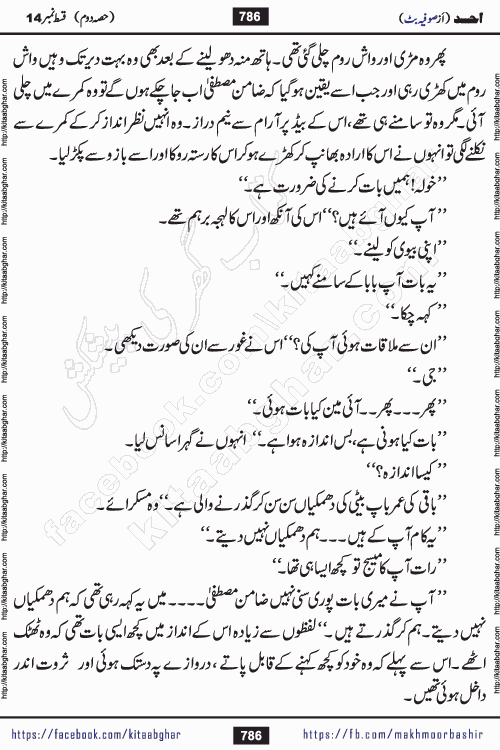 احد (از صوفیہ بٹ) 786 (حصہ دوم) قسط نمبر 14
پھر وہ مڑی اور واش روم چلی گئی تھی۔ ہاتھ منہ دھو لینے کے بعد بھی وہ بہت دیر تک وہیں واش
روم میں کھڑی رہی اور جب اسے یقین ہو گیا کہ ضامن مصطفیٰ اب جا چکے ہوں گے تو وہ کمرے میں چلی
آئی۔ مگر وہ تو سامنے ہی تھے، اس کے بیڈ پر آرام سے نیم دراز۔ وہ انہیں نظر انداز کر کے کمرے سے
نکلنے لگی تو انہوں نے اس کا ارادہ بھانپ کر کھڑے ہو کر اس کا رستہ روکا اور اسے بازو سے پکڑ لیا۔
’’خولہ! ہمیں بات کرنے کی ضرورت ہے۔‘‘
’’آپ کیوں آئے ہیں؟‘‘ اس کی آنکھ اور اس کا لہجہ برہم تھے۔
’’اپنی بیوی کو لینے۔‘‘
’’یہ بات آپ بابا کے سامنے کہیں۔‘‘
’’کہہ چکا۔‘‘
’’ان سے ملاقات ہوئی آپ کی؟‘‘ اس نے غور سے ان کی صورت دیکھی۔
’’جی۔‘‘
’’پھر۔۔۔ پھر۔۔ آئی مین کیا بات ہوئی۔‘‘
’’بات کیا ہونی ہے، بس اندازہ ہوا ہے۔‘‘ انہوں نے گہرا سانس لیا۔
’’کیسا اندازہ؟‘‘
’’باقی کی عمر باپ بیٹی کی دھمکیاں سن سن کر گذرنے والی ہے۔‘‘ وہ مسکرائے۔
’’یہ کام آپ کے ہیں۔۔۔ ہم دھمکیاں نہیں دیتے۔‘‘
’’رات آپ کا میسج تو کچھ ایسا ہی تھا۔‘‘
’’آپ نے میری بات پوری سنی نہیں ضامن مصطفیٰ۔۔۔۔ میں یہ کہہ رہی تھی کہ ہم دھمکیاں
نہیں دیتے۔ ہم کر گذرتے ہیں۔‘‘ لفظوں سے زیادہ اس کے انداز میں کچھ ایسی بات تھی کہ وہ ٹھٹک
اٹھے۔ اس سے پہلے کہ وہ خود کو کچھ کہنے کے قابل پاتے، دروازے پہ دستک ہوئی اور ثروت اندر
داخل ہوئی تھیں۔
https://facebook.com/kitaabghar 786 https://fb.com/makhmoorbashir
http://kitaabghar.com http://kitaabghar.com http://kitaabghar.com http://kitaabghar.com http://kitaabghar.com http://kitaabghar.com http://kitaabghar.com http://kitaabghar.com
کتاب گھر کی پیشکش
kitaabghar.com
facebook.com/kitaabghar